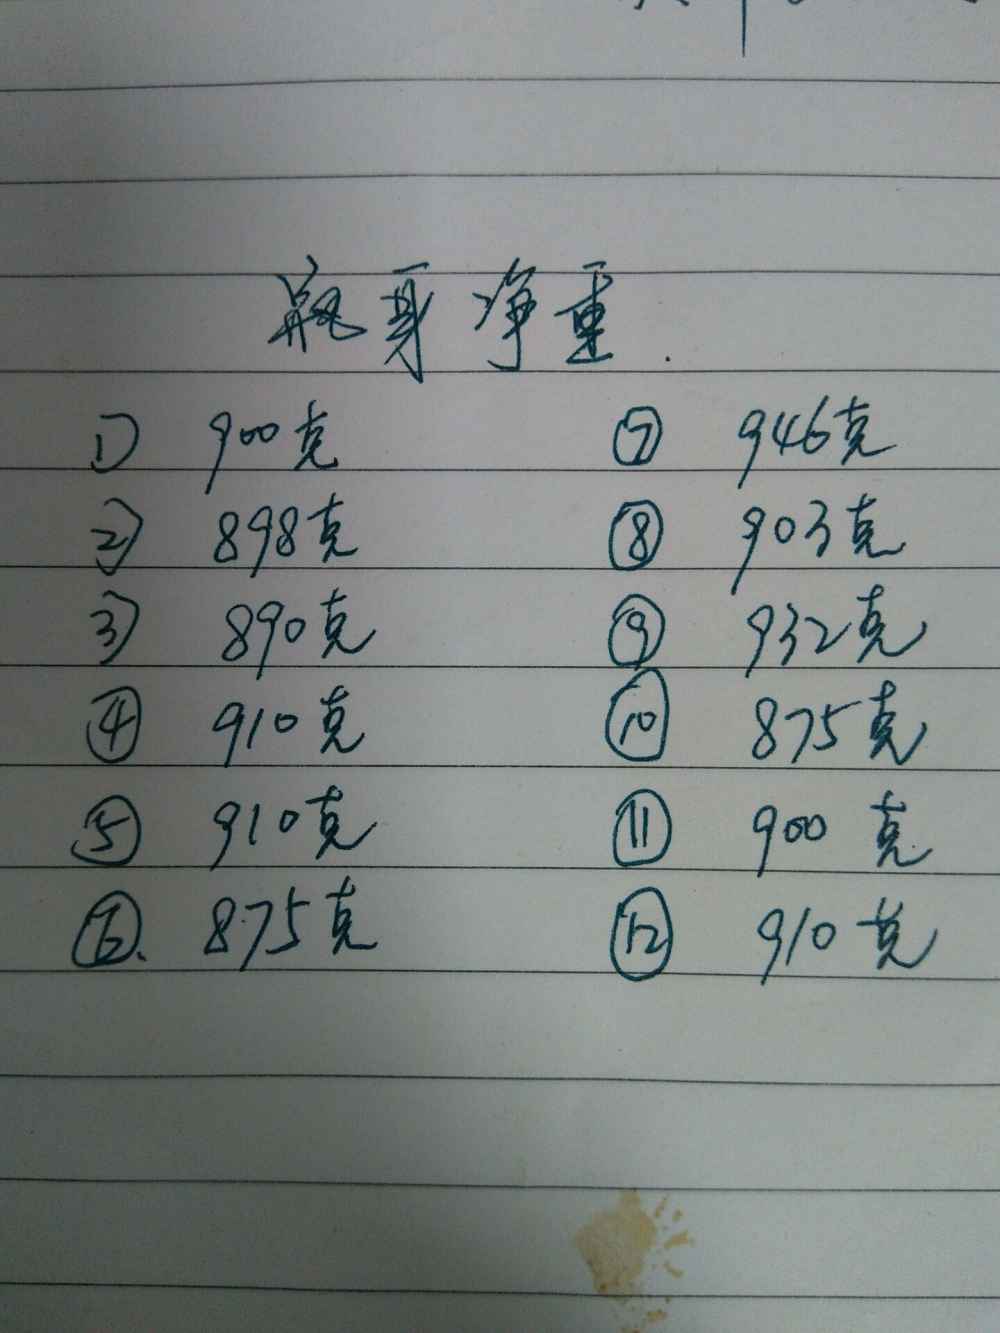 瓶身净重.
1) 900克 ⑦ 946克
2) 898克 ⑧ 903克
3) 890克 ⑨ 932克
④ 910克 ⑩ 875克
⑤ 910克 ⑪ 900克
⑥. 875克 ⑫ 910克